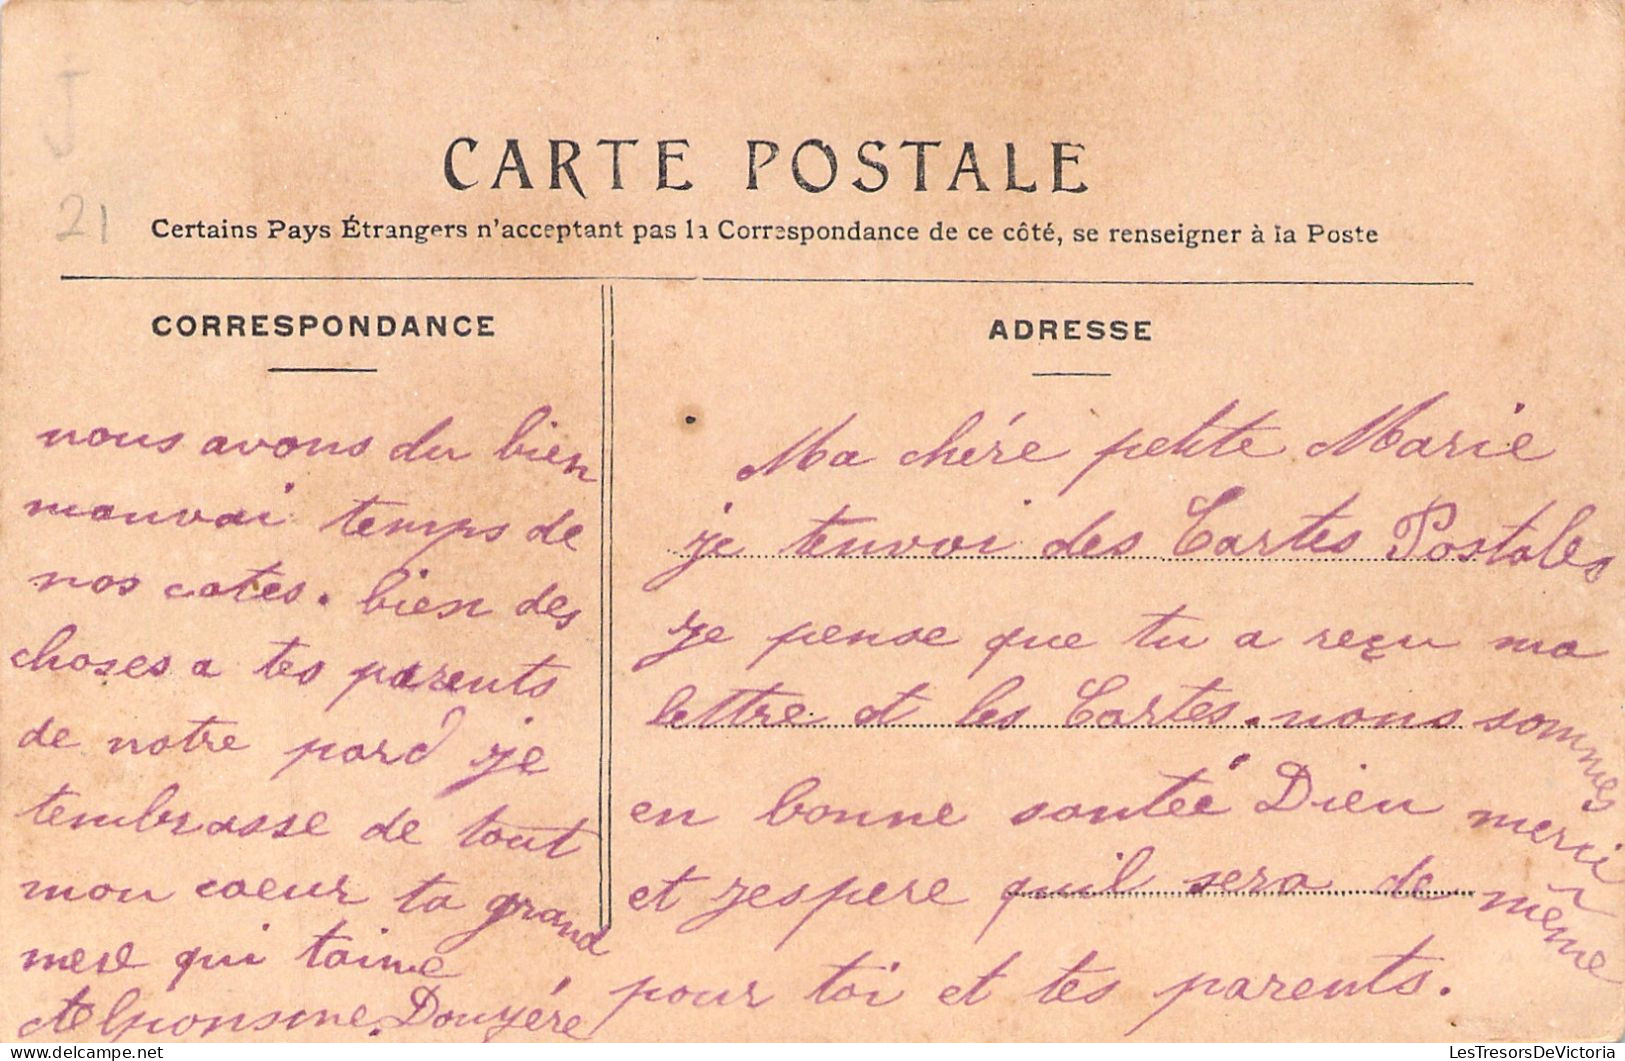 J
21
CARTE POSTALE
Certains Pays Étrangers n'acceptant pas la Correspondance de ce côté, se renseigner à la Poste
CORRESPONDANCE
ADRESSE
Ma chére petite Marie
je tenvoi des Cartes Postales
je pense que tu a reçu ma
lettre et les Cartes. nous sommes
en bonne santée Dieu merci
et jespere quil sera de même
pour toi et tes parents.
nous avons du bien
mauvai temps de
nos cotes. bien des
choses a tes parents
de notre pard je
tembrasse de tout
mon coeur ta grand
mere qui taime
Alponsine Douyére
LesTresorsDeVictoria